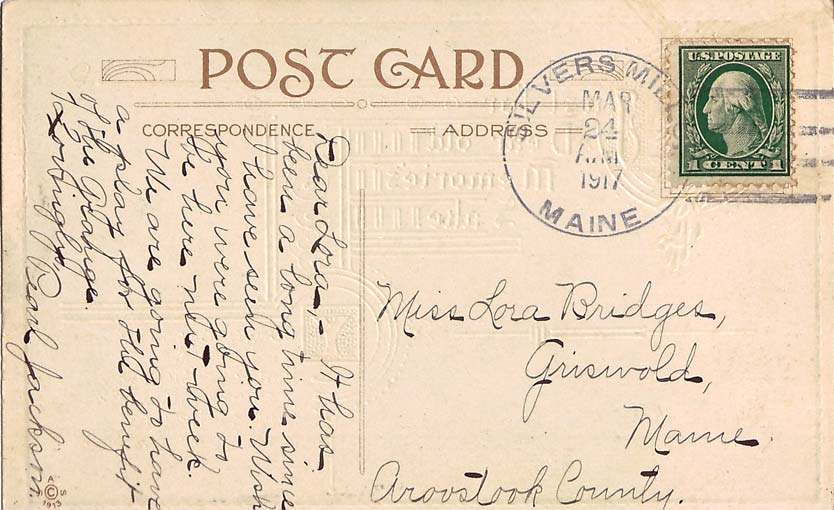 POST CARD
CORRESPONDENCE
ADDRESS
SILVERS MIL
MAR
24
A.M
1917
MAINE
U.S. POSTAGE
1 CENT 1
Dear Lora,- It has
been a long time since
I have seen you. Wish
you were going to
be here next week.
We are going to have
a play for the benefit
of the Grange.
Lovingly,
Pearl Jackson.
Miss Lora Bridges,
Griswold,
Maine.
Aroostook County.
A S
©
1913